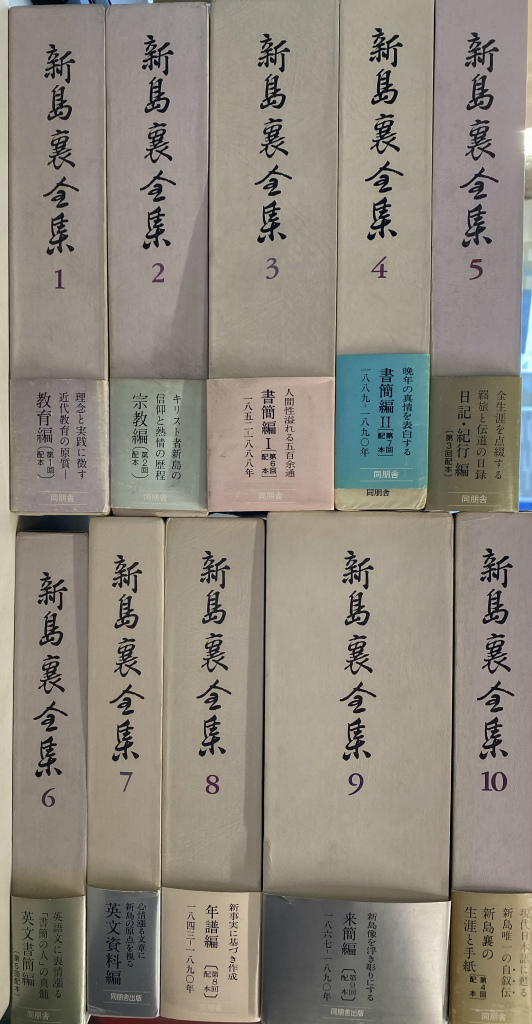 新島襄全集
1
理念と実践に徴す
近代教育の原質―
教育編
〔第1回配本〕
同朋舎
新島襄全集
2
キリスト者新島の
信仰と熱情の歴程
宗教編
〔第2回配本〕
同朋舎
新島襄全集
3
人間性溢れる五百余通
書簡編Ⅰ
〔第6回配本〕
一八五二-一八八八年
同朋舎
新島襄全集
4
晩年の真情を表白する
書簡編Ⅱ
〔第7回配本〕
一八八九-一八九〇年
同朋舎
同朋舎
新島襄全集
5
全生涯を点綴する
羇旅と伝道の日録
日記・紀行編
〔第3回配本〕
同朋舎
新島襄全集
6
英語文に表情漲る
「書簡の人」の真髄
英文書簡編
〔第5回配本〕
同朋舎
新島襄全集
7
心情漲る文章に
新島の原点を視る
英文資料編
同朋舎出版
新島襄全集
8
新事実に基づき作成
年譜編
〔第8回配本〕
一八四三-一八九〇年
同朋舎出版
新島襄全集
9
新島像を浮き彫りにする
来簡編
〔第9回配本〕
一八六七-一八九〇年
同朋舎出版
新島襄全集
10
現代日本語で甦る
新島唯一の自叙伝
新島襄の
生涯と手紙
〔第4回配本〕
同朋舎